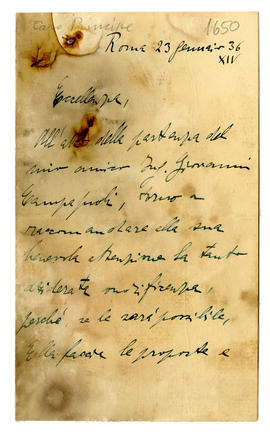 Caro Principe
1650
Roma 23 gennaio 36
XIV
Eccellenza,
All'atto della partenza del
mio amico Ing. Giovanni
Campagnoli, torno a
raccomandare alla sua
benevola attenzione la tanto
desiderata onorificenza,
perché, se le sarà possibile,
Ella faccia le proposte e